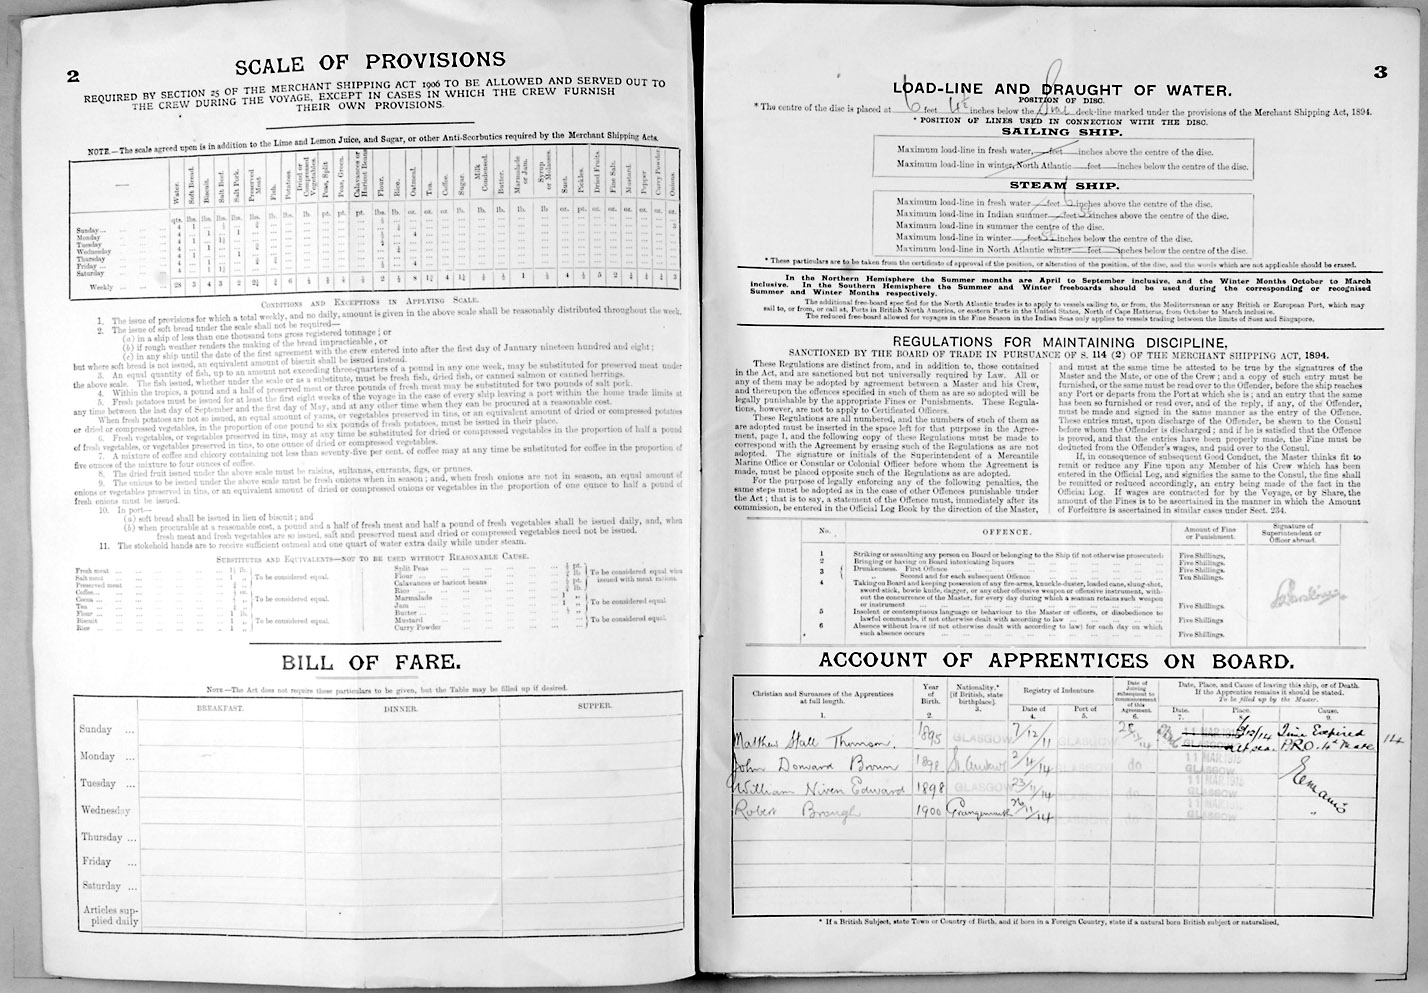 2
SCALE OF PROVISIONS
REQUIRED BY SECTION 25 OF THE MERCHANT SHIPPING ACT 1906 TO BE ALLOWED AND SERVED OUT TO
THE CREW DURING THE VOYAGE, EXCEPT IN CASES IN WHICH THE CREW FURNISH
THEIR OWN PROVISIONS.
NOTE.—The scale agreed upon is in addition to the Lime and Lemon Juice, and Sugar, or other Anti-Scorbutics required by the Merchant Shipping Acts.
Water. Soft Bread. Biscuit. Salt Beef. Salt Pork. Preserved Meat. Fish. Potatoes. Dried or Compressed Vegetables. Peas, Split Peas, Green. Calavances or Haricot Beans Flour. Rice. Oatmeal. Tea. Coffee. Sugar. Milk Condensed. Butter. Marmalade or Jam. Syrup or Molasses. Suet. Pickles. Dried Fruits. Fine Salt. Mustard. Pepper Curry Powder Onions.
Sunday...
Monday
Tuesday
Wednesday
Thursday
Friday ...
Saturday
Weekly
CONDITIONS AND EXCEPTIONS IN APPLYING SCALE.
1. The issue of provisions for which a total weekly, and no daily, amount is given in the above scale shall be reasonably distributed throughout the week.
2. The issue of soft bread under the scale shall not be required—
(a) in a ship of less than one thousand tons gross registered tonnage; or
(b) if rough weather renders the making of the bread impracticable, or
(c) in any ship until the date of the first agreement with the crew entered into after the first day of January nineteen hundred and eight;
but where soft bread is not issued, an equivalent amount of biscuit shall be issued instead.
3. An equal quantity of fish, up to an amount not exceeding three-quarters of a pound in any one week, may be substituted for preserved meat under
the above scale. The fish issued, whether under the scale or as a substitute, must be fresh fish, dried fish, or canned salmon or canned herrings.
4. Within the tropics, a pound and a half of preserved meat or three pounds of fresh meat may be substituted for two pounds of salt pork.
5. Fresh potatoes must be issued for at least the first eight weeks of the voyage in the case of every ship leaving a port within the home trade limits at
any time between the last day of September and the first day of May, and at any other time when they can be procured at a reasonable cost.
When fresh potatoes are not so issued, an equal amount of yams, or vegetables preserved in tins, or an equivalent amount of dried or compressed potatoes
or dried or compressed vegetables, in the proportion of one pound to six pounds of fresh potatoes, must be issued in their place.
6. Fresh vegetables, or vegetables preserved in tins, may at any time be substituted for dried or compressed vegetables in the proportion of half a pound
of fresh vegetables, or vegetables preserved in tins, to one ounce of dried or compressed vegetables.
7. A mixture of coffee and chicory containing not less than seventy-five per cent. of coffee may at any time be substituted for coffee in the proportion of
five ounces of the mixture to four ounces of coffee.
8. The dried fruit issued under the above scale must be raisins, sultanas, currants, figs, or prunes.
9. The onions to be issued under the above scale must be fresh onions when in season; and, when fresh onions are not in season, an equal amount of
onions or vegetables preserved in tins, or an equivalent amount of dried or compressed onions or vegetables in the proportion of one ounce to half a pound of
fresh onions must be issued.
10. In port—
(a) soft bread shall be issued in lieu of biscuit; and
(b) when procurable at a reasonable cost, a pound and a half of fresh meat and half a pound of fresh vegetables shall be issued daily, and, when
fresh meat and fresh vegetables are so issued, salt and preserved meat and dried or compressed vegetables need not be issued.
11. The stokehold hands are to receive sufficient oatmeal and one quart of water extra daily while under steam.
SUBSTITUTES AND EQUIVALENTS—NOT TO BE USED WITHOUT REASONABLE CAUSE.
Fresh meat
Salt meat
Preserved meat
To be considered equal.
Coffee
Cocoa
Tea
To be considered equal.
Flour
Biscuit
Rice
To be considered equal.
Split Peas
Flour
Calavances or haricot beans
Rice
To be considered equal when issued with meat rations.
Marmalade
Jam
Butter
To be considered equal.
Mustard
Curry Powder
To be considered equal.
BILL OF FARE.
NOTE—The Act does not require these particulars to be given, but the Table may be filled up if desired.
BREAKFAST. DINNER. SUPPER.
Sunday ...
Monday ...
Tuesday ...
Wednesday
Thursday ...
Friday ...
Saturday ...
Articles sup-
plied daily
3
LOAD-LINE AND DRAUGHT OF WATER.
POSITION OF DISC.
* The centre of the disc is placed at 6 feet inches below the deck-line marked under the provisions of the Merchant Shipping Act, 1894.
* POSITION OF LINES USED IN CONNECTION WITH THE DISC.
SAILING SHIP.
Maximum load-line in fresh water, feet inches above the centre of the disc.
Maximum load-line in winter, North Atlantic feet inches below the centre of the disc.
STEAM SHIP.
Maximum load-line in fresh water feet inches above the centre of the disc.
Maximum load-line in Indian summer feet inches above the centre of the disc.
Maximum load-line in summer the centre of the disc.
Maximum load-line in winter feet inches below the centre of the disc.
Maximum load-line in North Atlantic winter feet inches below the centre of the disc.
* These particulars are to be taken from the certificate of approval of the position, or alteration of the position, of the disc, and the words which are not applicable should be erased.
In the Northern Hemisphere the Summer months are April to September inclusive, and the Winter Months October to March
inclusive. In the Southern Hemisphere the Summer and Winter freeboards should be used during the corresponding or recognised
Summer and Winter Months respectively.
The additional free-board specified for the North Atlantic trades is to apply to vessels sailing to, or from, the Mediterranean or any British or European Port, which may
sail to, or from, or call at, Ports in British North America, or eastern Ports in the United States, North of Cape Hatteras, from October to March inclusive.
The reduced free-board allowed for voyages in the Fine Season in the Indian Seas only applies to vessels trading between the limits of Suez and Singapore.
REGULATIONS FOR MAINTAINING DISCIPLINE,
SANCTIONED BY THE BOARD OF TRADE IN PURSUANCE OF S. 114 (2) OF THE MERCHANT SHIPPING ACT, 1894.
These Regulations are distinct from, and in addition to, those contained
in the Act, and are sanctioned but not universally required by Law. All or
any of them may be adopted by agreement between a Master and his Crew,
and thereupon the offences specified in such of them as are so adopted will be
legally punishable by the appropriate Fines or Punishments. These Regula-
tions, however, are not to apply to Certificated Officers.
These Regulations are all numbered, and the numbers of such of them as
are adopted must be inserted in the space left for that purpose in the Agree-
ment, page 1, and the following copy of these Regulations must be made to
correspond with the Agreement by erasing such of the Regulations as are not
adopted. The signature or initials of the Superintendent of a Mercantile
Marine Office or Consular or Colonial Officer before whom the Agreement is
made, must be placed opposite such of the Regulations as are adopted.
For the purpose of legally enforcing any of the following penalties, the
same steps must be adopted as in the case of other Offences punishable under
the Act; that is to say, a statement of the Offence must, immediately after its
commission, be entered in the Official Log Book by the direction of the Master,
and must at the same time be attested to be true by the signatures of the
Master and the Mate, or one of the Crew; and a copy of such entry must be
furnished, or the same must be read over to the Offender, before the ship reaches
any Port or departs from the Port at which she is; and an entry that the same
has been so furnished or read over, and of the reply, if any, of the Offender,
must be made and signed in the same manner as the entry of the Offence.
These entries must, upon discharge of the Offender, be shewn to the Consul
before whom the Offender is discharged; and if he is satisfied that the Offence
is proved, and that the entries have been properly made, the Fine must be
deducted from the Offender's wages, and paid over to the Consul.
If, in consequence of subsequent Good Conduct, the Master thinks fit to
remit or reduce any Fine upon any Member of his Crew which has been
entered in the Official Log, and signifies the same to the Consul, the fine shall
be remitted or reduced accordingly, an entry being made of the fact in the
Official Log. If wages are contracted for by the Voyage, or by Share, the
amount of the Fines is to be ascertained in the manner in which the Amount
of Forfeiture is ascertained in similar cases under Sect. 234.
No. OFFENCE. Amount of Fine or Punishment. Signature of Superintendent or Officer abroad.
1 Striking or assaulting any person on Board or belonging to the Ship (if not otherwise prosecuted) Five Shillings.
2 Bringing or having on Board intoxicating liquors Five Shillings.
3 Drunkenness. First Offence Five Shillings.
Second and for each subsequent Offence Ten Shillings.
4 Taking on Board and keeping possession of any fire-arms, knuckle-duster, loaded cane, slung-shot,
sword-stick, bowie knife, dagger, or any other offensive weapon or offensive instrument, with-
out the concurrence of the Master, for every day during which a seaman retains such weapon
or instrument Five Shillings.
5 Insolent or contemptuous language or behaviour to the Master or officers, or disobedience to
lawful commands, if not otherwise dealt with according to law Five Shillings.
6 Absence without leave (if not otherwise dealt with according to law) for each day on which
such absence occurs Five Shillings.
ACCOUNT OF APPRENTICES ON BOARD.
Christian and Surnames of the Apprentices at full length. Year of Birth. Nationality.* [if British, state birthplace]. Registry of Indenture. Date of Joining subsequent to commencement of this Agreement. Date, Place, and Cause of leaving this ship, or of Death.
If the Apprentice remains it should be stated.
To be filled up by the Master.
Date of Port of Date. Place. Cause.
1. 2. 3. 4. 5. 6. 7. 8. 9.
Matthew Stall Thomson. 1895 GLASGOW 7/12/11 GLASGOW 11 MAR 1915 GLASGOW Time Expired
At sea. P.R.O. 4th Mate 14
John Donward Brown 1898 2/4/14 GLASGOW do 11 MAR 1915 GLASGOW Remains
William Niven Edward 1898 GLASGOW 23/11/14 do 11 MAR 1915 GLASGOW
Robert Brough 1900 Grangemouth 26/11/14 do 11 MAR 1915 GLASGOW "
* If a British Subject, state Town or Country of Birth, and if born in a Foreign Country, state if a natural born British subject or naturalised.